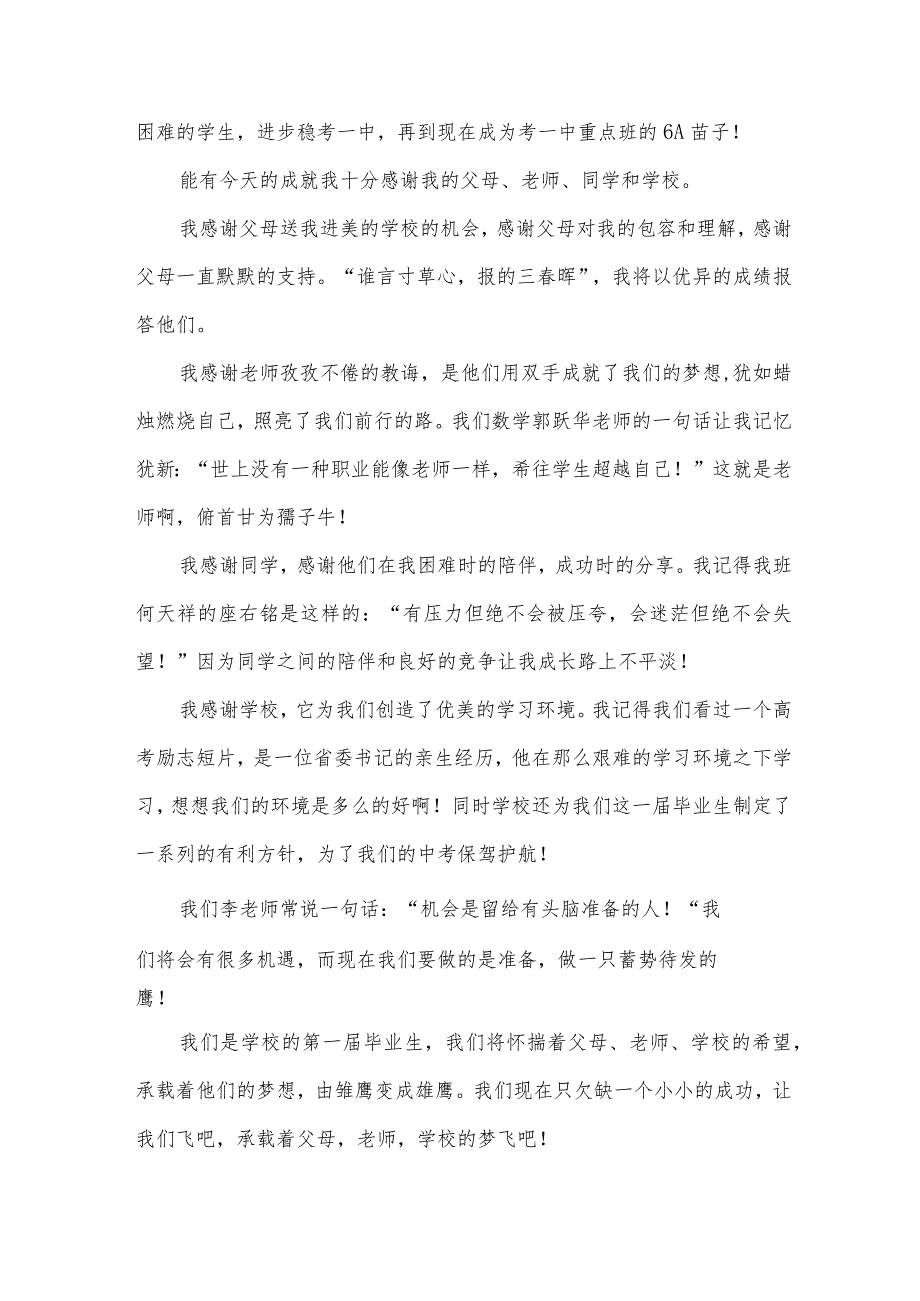 困难的学生，进步稳考一中，再到现在成为考一中重点班的 6A 苗子！
能有今天的成就我十分感谢我的父母、老师、同学和学校。
我感谢父母送我进美的学校的机会，感谢父母对我的包容和理解，感谢
父母一直默默的支持。“谁言寸草心，报的三春晖”，我将以优异的成绩报
答他们。
我感谢老师孜孜不倦的教诲，是他们用双手成就了我们的梦想,犹如蜡
烛燃烧自己，照亮了我们前行的路。我们数学郭跃华老师的一句话让我记忆
犹新：“世上没有一种职业能像老师一样，希往学生超越自己！”这就是老
师啊，俯首甘为孺子牛！
我感谢同学，感谢他们在我困难时的陪伴，成功时的分享。我记得我班
何天祥的座右铭是这样的：“有压力但绝不会被压夸，会迷茫但绝不会失
望！”因为同学之间的陪伴和良好的竞争让我成长路上不平淡！
我感谢学校，它为我们创造了优美的学习环境。我记得我们看过一个高
考励志短片，是一位省委书记的亲生经历，他在那么艰难的学习环境之下学
习，想想我们的环境是多么的好啊！同时学校还为我们这一届毕业生制定了
一系列的有利方针，为了我们的中考保驾护航！
我们李老师常说一句话：“机会是留给有头脑准备的人！“我
们将会有很多机遇，而现在我们要做的是准备，做一只蓄势待发的
鹰！
我们是学校的第一届毕业生，我们将怀揣着父母、老师、学校的希望，
承载着他们的梦想，由雏鹰变成雄鹰。我们现在只欠缺一个小小的成功，让
我们飞吧，承载着父母，老师，学校的梦飞吧！